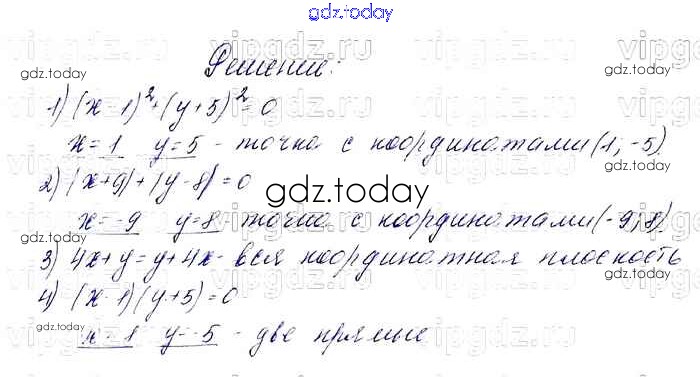 gdz.today
vipgdz.ru vipgdz.ru
Решение:
gdz.today gdz.today gdz.today
1) (x-1)²+(y+5)²=0
x=1 y=5 - точка с координатами (1; -5)
gdz.today gdz.today
2) |x+9|+|y-8|=0
gdz.today
x=-9 y=8 - точка с координатами (-9; 8)
3) 4x+y=y+4x - вся координатная плоскость
4) (x-1)(y+5)=0
gdz.today gdz.today gdz.today
x=1 y=-5 - две прямые